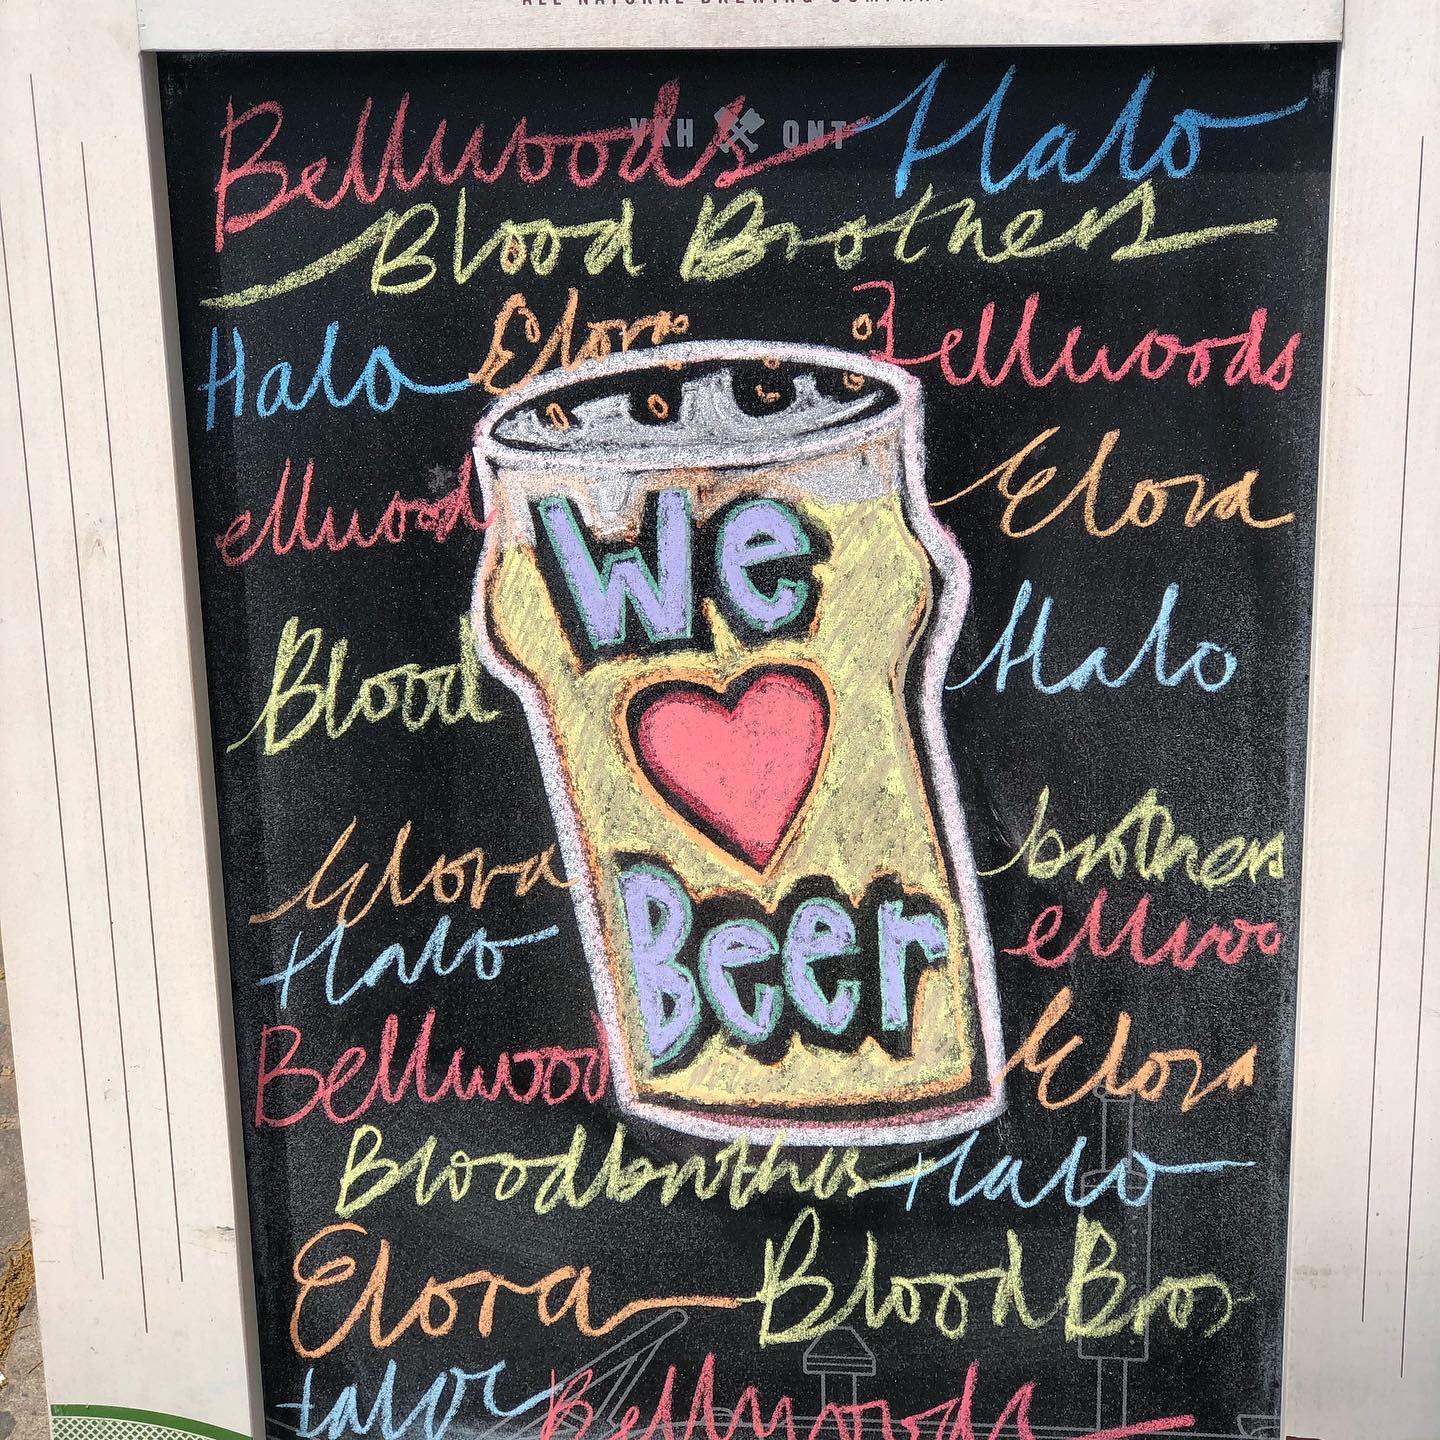 ALL NATURAL BREWING COMPANY
VKH ONT
Bellwoods Halo
Blood Brothers
Halo Elora Bellwoods
ellwood Elora
We
Blood Halo
Elora brothers
Beer
Halo ellwoo
Bellwood Elora
Bloodbrothers Halo
Elora Blood Bros
Halo Bellwoods